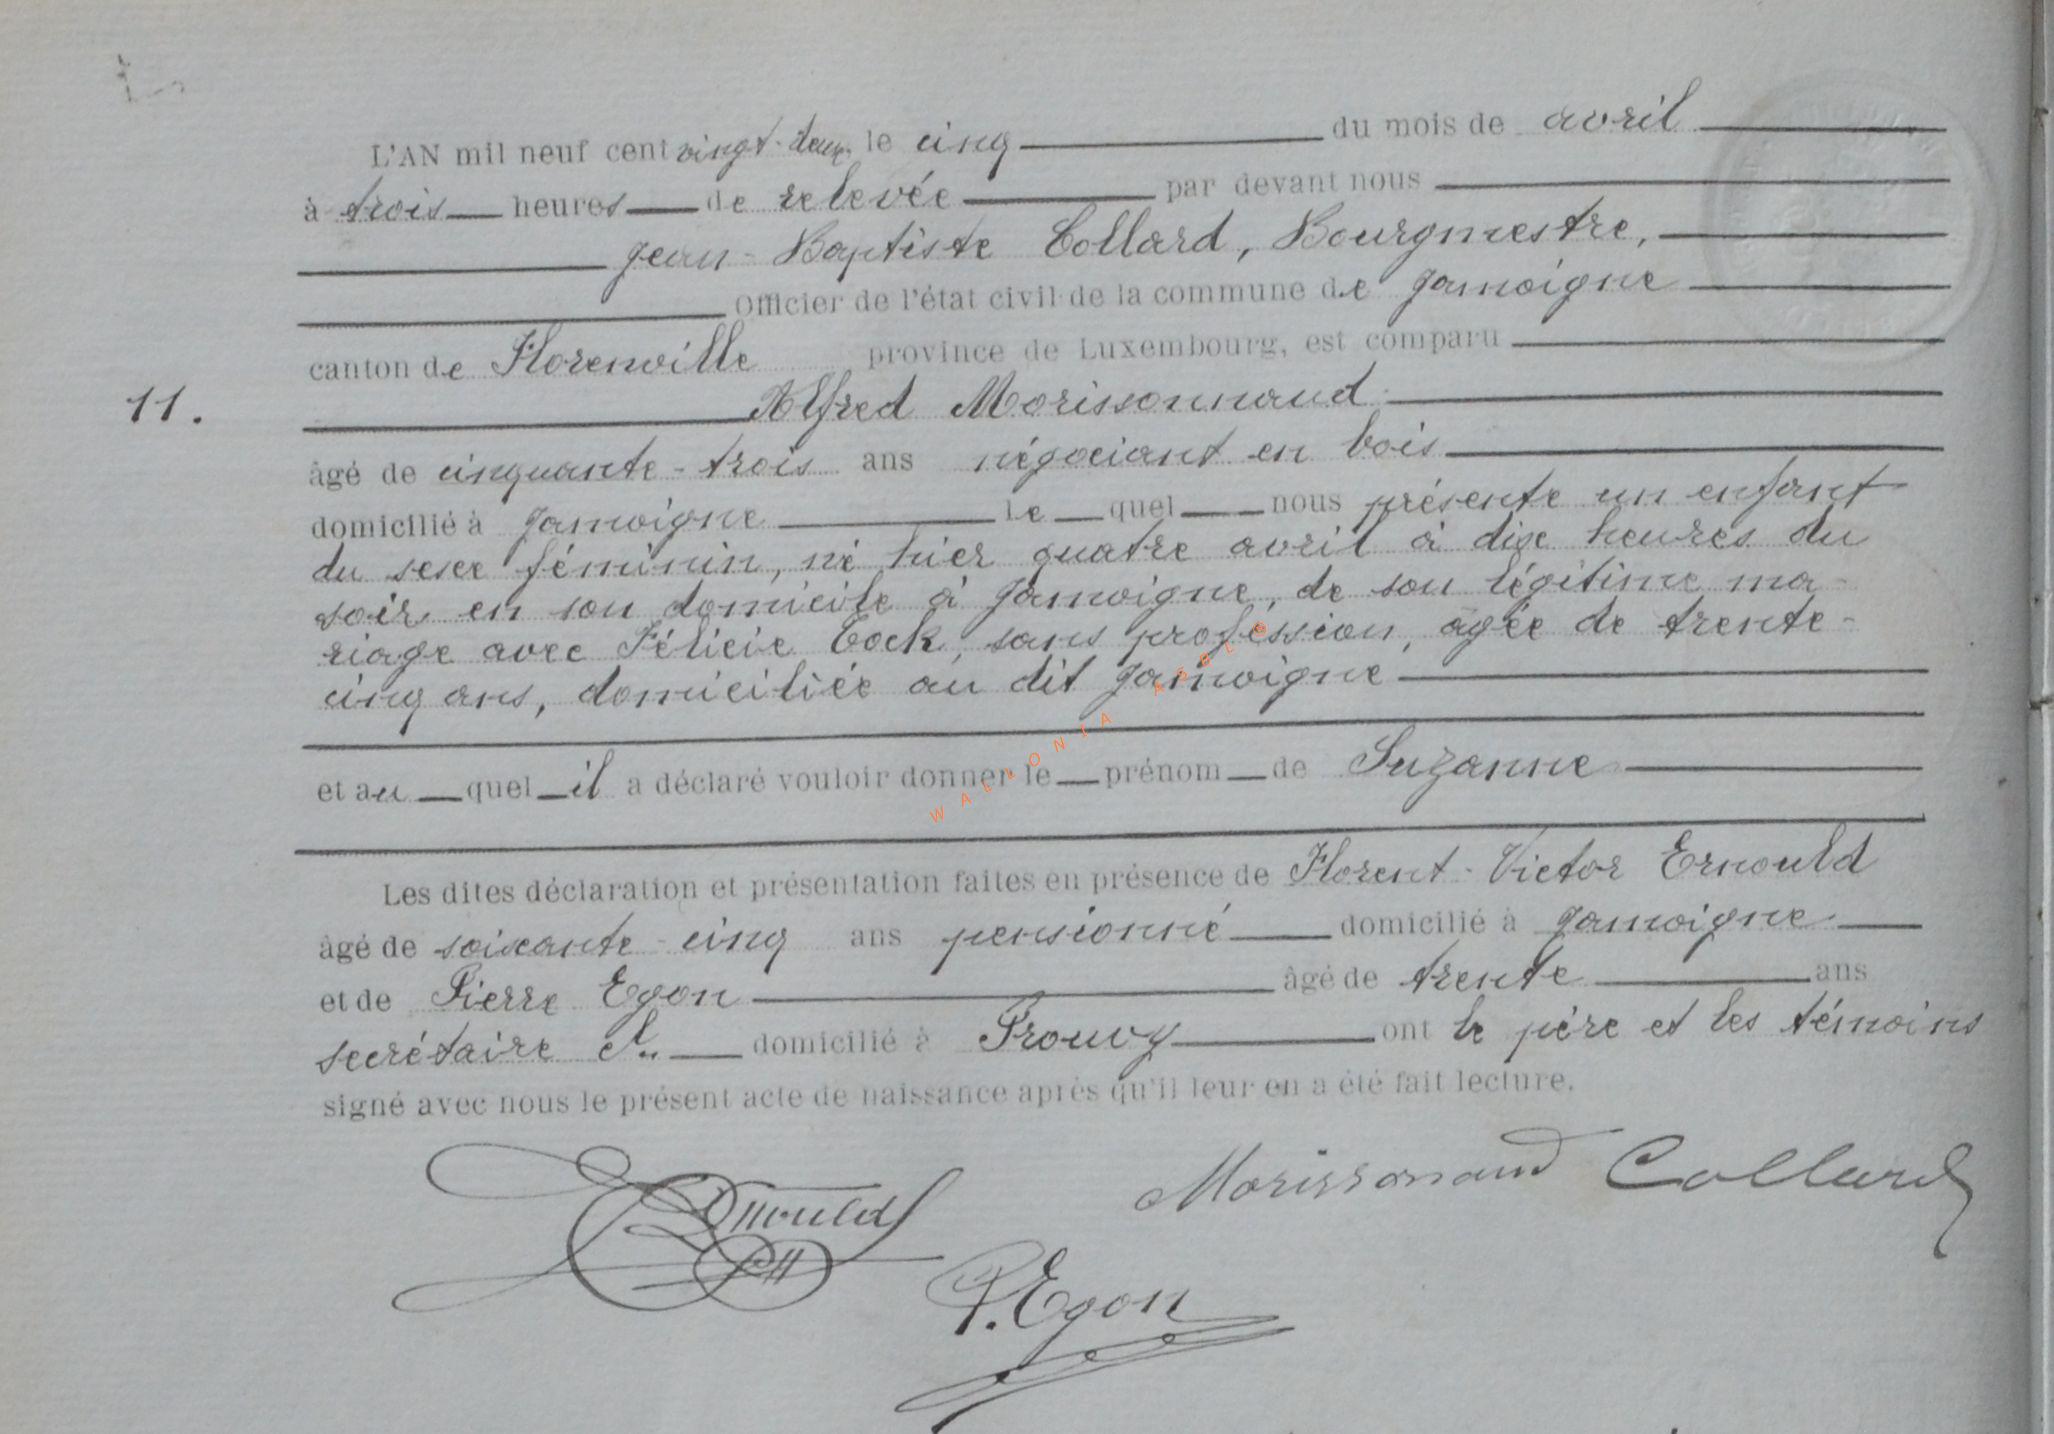 L'AN mil neuf cent vingt-deux, le cinq du mois de avril
à trois heures de relevée par devant nous
Jean-Baptiste Collard, Bourgmestre,
Officier de l'état civil de la commune de Jamoigne
canton de Florenville province de Luxembourg, est comparu
11.
Alfred Morissonnaud
âgé de cinquante-trois ans négociant en bois
domicilié à Jamoigne Le quel nous présente un enfant
du sexe féminin, né hier quatre avril à dix heures du
soir en son domicile à Jamoigne, de son légitime ma-
riage avec Félicie Cock, sans profession, âgée de trente-
cinq ans, domiciliée au dit Jamoigne
et au quel il a déclaré vouloir donner le prénom de Suzanne
Les dites déclaration et présentation faites en présence de Florent-Victor Ernould
âgé de soixante-cinq ans pensionné domicilié à Jamoigne
et de Pierre Egon âgé de trente ans
secrétaire cl domicilié à Prouvy ont le père et les témoins
signé avec nous le présent acte de naissance après qu'il leur en a été fait lecture.
Morissonnaud Collard
Ernould
P. Egon
WALLONIA ASBL ©